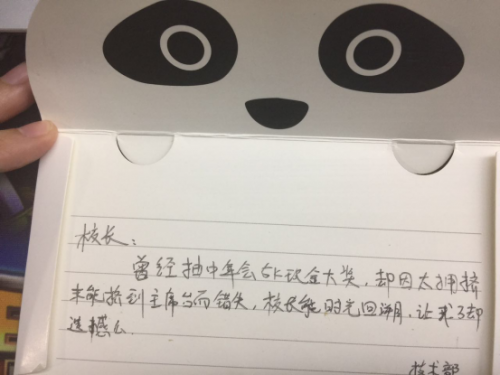 校长：
曾经抽中年会5k现金大奖，却因太拥挤
未能挤到主席台而错失，校长能时光回溯，让我了却
遗憾么
技术部